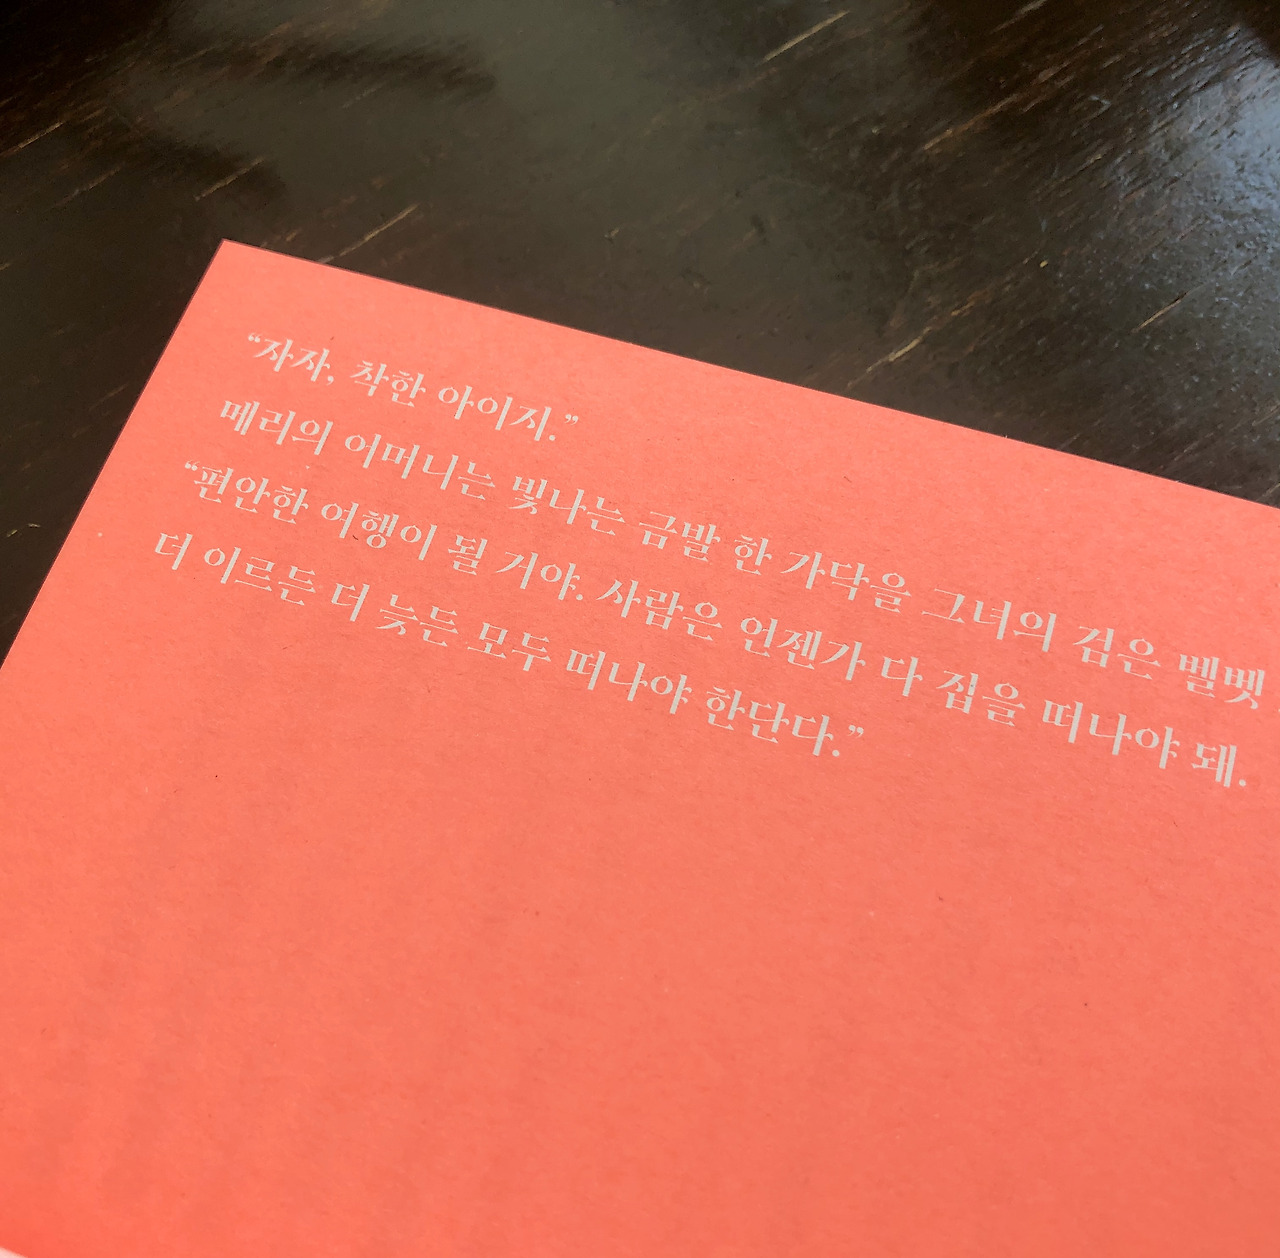 “자자, 착한 아이지.”
메리의 어머니는 빛나는 금발 한 가닥을 그녀의 검은 벨벳
“편안한 여행이 될 거야. 사람은 언젠가 다 집을 떠나야 돼.
더 이르든 더 늦든 모두 떠나야 한단다.”